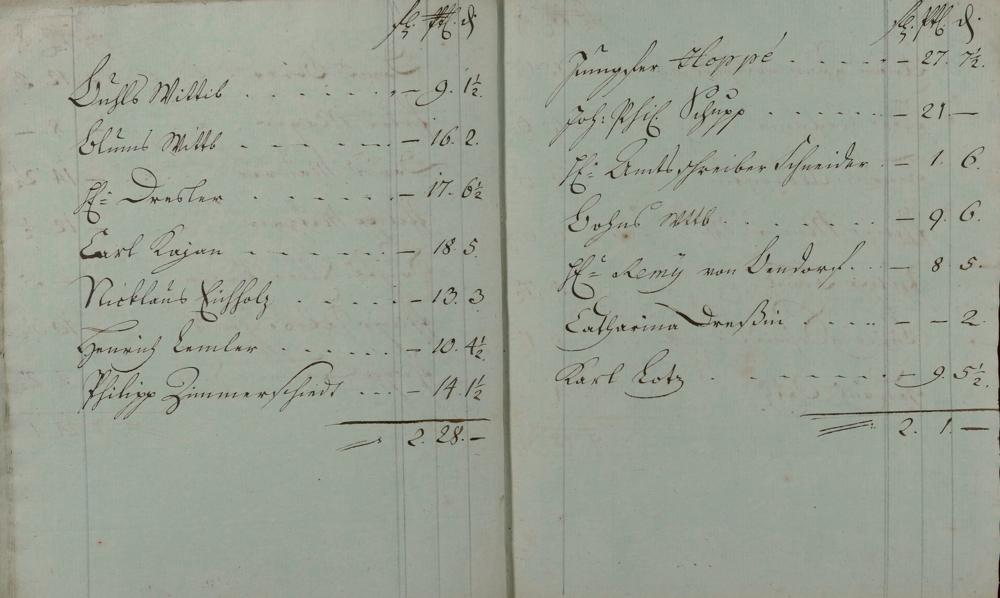 fl. Xtl. d.
Buhls Wittib . . . . . . . – 9. 1½.
Blums Wittb . . . . . . . – 16. 2.
H: Dresler . . . . . . – 17. 6½
Carl Kajan . . . . . . . – 18. 5.
Nicklaus Eichholz . . . . . – 13. 3
Henrich Lemler . . . . . . – 10. 4½.
Philipp Zimmerschiedt . . . – 14. 1½
2. 28. –
fl. Xtl. d.
Jungfer Hoppé . . . . . – 27. 7½.
Joh: Phil. Schupp . . . . . . – 21 –
H: Amtsschreiber Schneider – 1. 6.
Bohns Wttb . . . . . . – 9. 6.
H: Remÿ von Bendorf . . – 8 5.
Catharina Dreßin . . . . – – 2.
Karl Lotz . . . . . . . . – 9. 5½.
2. 1. –